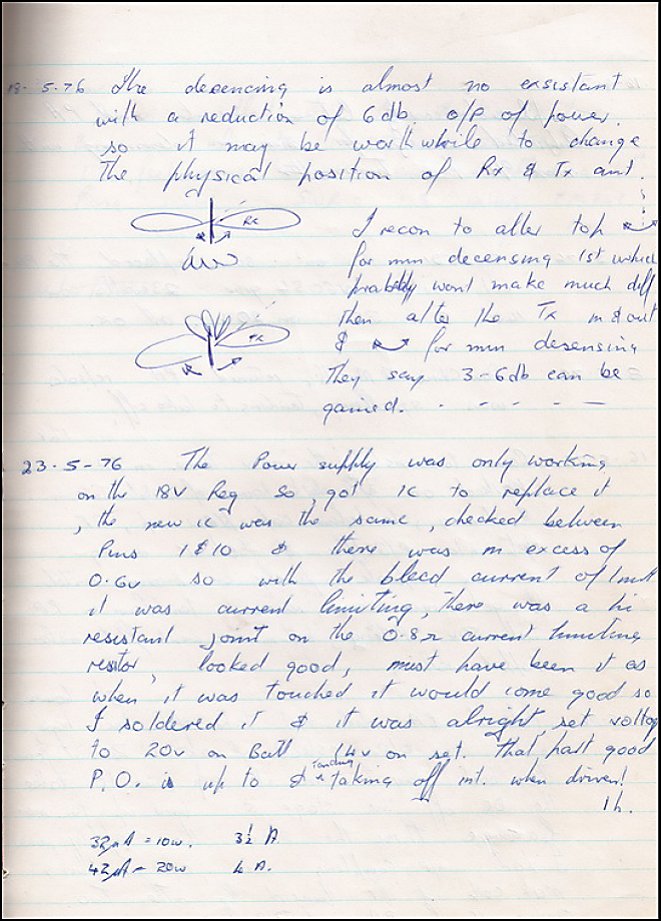 18-5-76 The desencing is almost no exsistant
with a reduction of 6db. o/p of power.
so it may be worthwhile to change
The physical position of Rx & Tx ant.
Rx
I recon to alter top
for min decensing 1st which
probably wont make much diff
then alter the Tx in & out
Rx
& for min desensing
They say 3-6db can be
gained. - - - - -
23-5-76 The Power supply was only working
on the 18V Reg so got IC to replace it
, the new ic was the same, checked between
Pins 1 & 10 & there was in excess of
0.6v so with the bleed current of
it was current limiting, there was a hi
resistant joint on the 0.8Ω current limiting
resitor, looked good, must have been it as
when it was touched it would come good so
I soldered it & it was alright, set voltag
to 20v on Batt 14v on set. That part good
P.O. is up to & taking off int. when driven!
1h.
32µA = 10w. 3½ A
42µA - 20w 4 A.